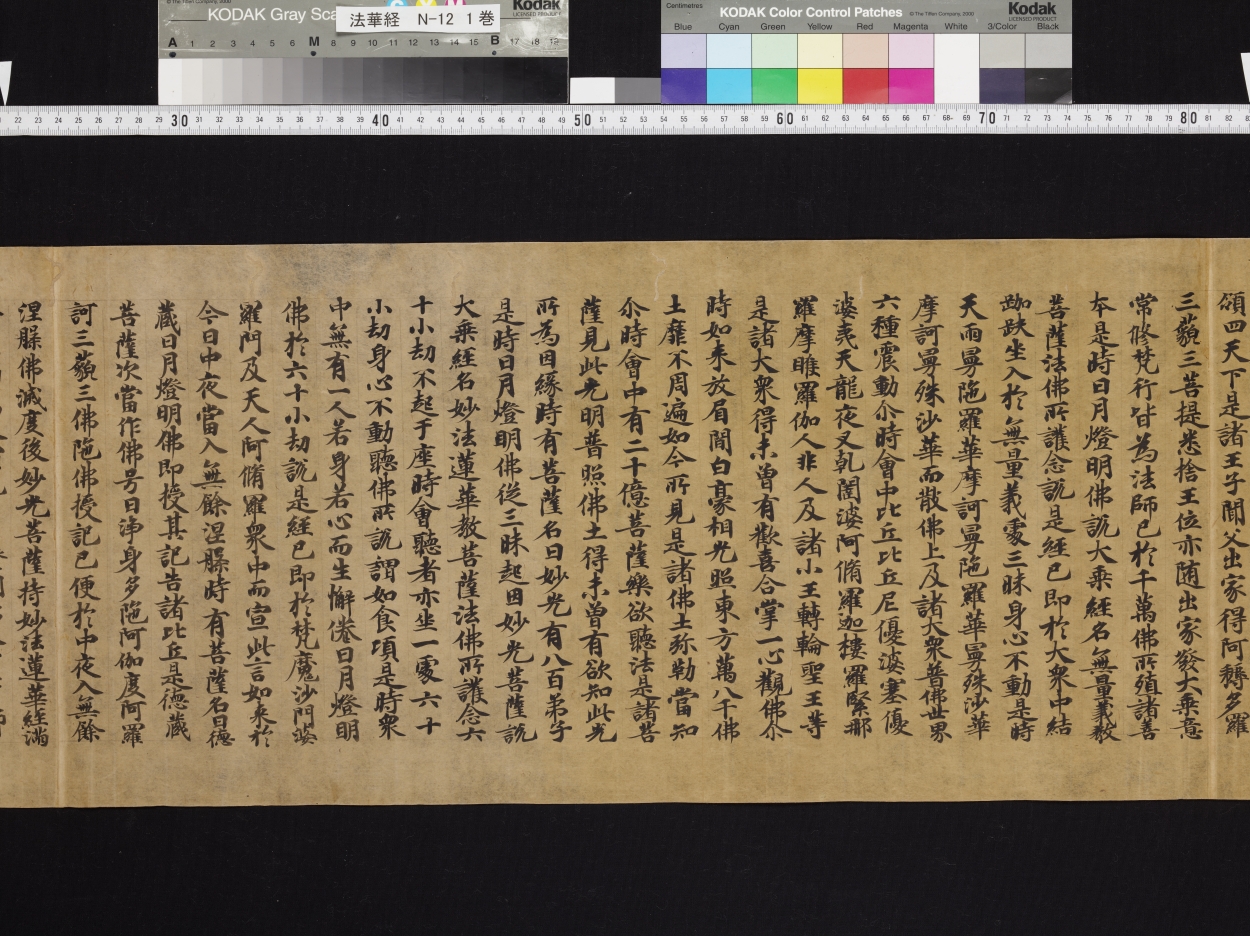 KODAK Gray Sca
© The Tiffen Company, 2000
Kodak
LICENSED PRODUCT
法華経 N-12 1巻
A 1 2 3 4 5 6 M 8 9 10 11 12 13 14 15 B 17 18 19
Centimetres
KODAK Color Control Patches
© The Tiffen Company, 2000
Kodak
LICENSED PRODUCT
Blue Cyan Green Yellow Red Magenta White 3/Color Black
22 23 24 25 26 27 28 29 30 31 32 33 34 35 36 37 38 39 40 41 42 43 44 45 46 47 48 49 50 51 52 53 54 55 56 57 58 59 60 61 62 63 64 65 66 67 68 69 70 71 72 73 74 75 76 77 78 79 80 81 82
領四天下是諸王子聞父出家得阿耨多羅
三藐三菩提悉捨王位亦随出家發大乘意
常修梵行皆為法師已於千萬佛所殖諸善
本是時日月燈明佛說大乘經名無量義教
菩薩法佛所護念說是經已即於大衆中結
跏趺坐入於無量義處三昧身心不動是時
天雨曼陁羅華摩訶曼陁羅華曼殊沙華
摩訶曼殊沙華而散佛上及諸大衆普佛世界
六種震動尒時會中比丘比丘尼優婆塞優
婆夷天龍夜叉乹闥婆阿脩羅迦樓羅緊那
羅摩睺羅伽人非人及諸小王轉輪聖王等
是諸大衆得未曾有歡喜合掌一心觀佛尒
時如来放眉間白豪相光照東方萬八千佛
土靡不周遍如今所見是諸佛土弥勒當知
尒時會中有二十億菩薩樂欲聽法是諸菩
薩見此光明普照佛土得未曾有欲知此光
所為因縁時有菩薩名曰妙光有八百弟子
是時日月燈明佛從三昧起因妙光菩薩說
大乘經名妙法蓮華教菩薩法佛所護念六
十小劫不起于座時會聽者亦坐一處六十
小劫身心不動聽佛所說謂如食頃是時衆
中無有一人若身若心而生懈惓日月燈明
佛於六十小劫說是經已即於梵魔沙門婆
羅門及天人阿脩羅衆中而宣此言如来於
今日中夜當入無餘涅槃時有菩薩名曰德
蔵日月燈明佛即授其記告諸比丘是德蔵
菩薩次當作佛号曰浄身多陁阿伽度阿羅
訶三藐三佛陁佛授記已便於中夜入無餘
涅槃佛滅度後妙光菩薩持妙法蓮華經滿